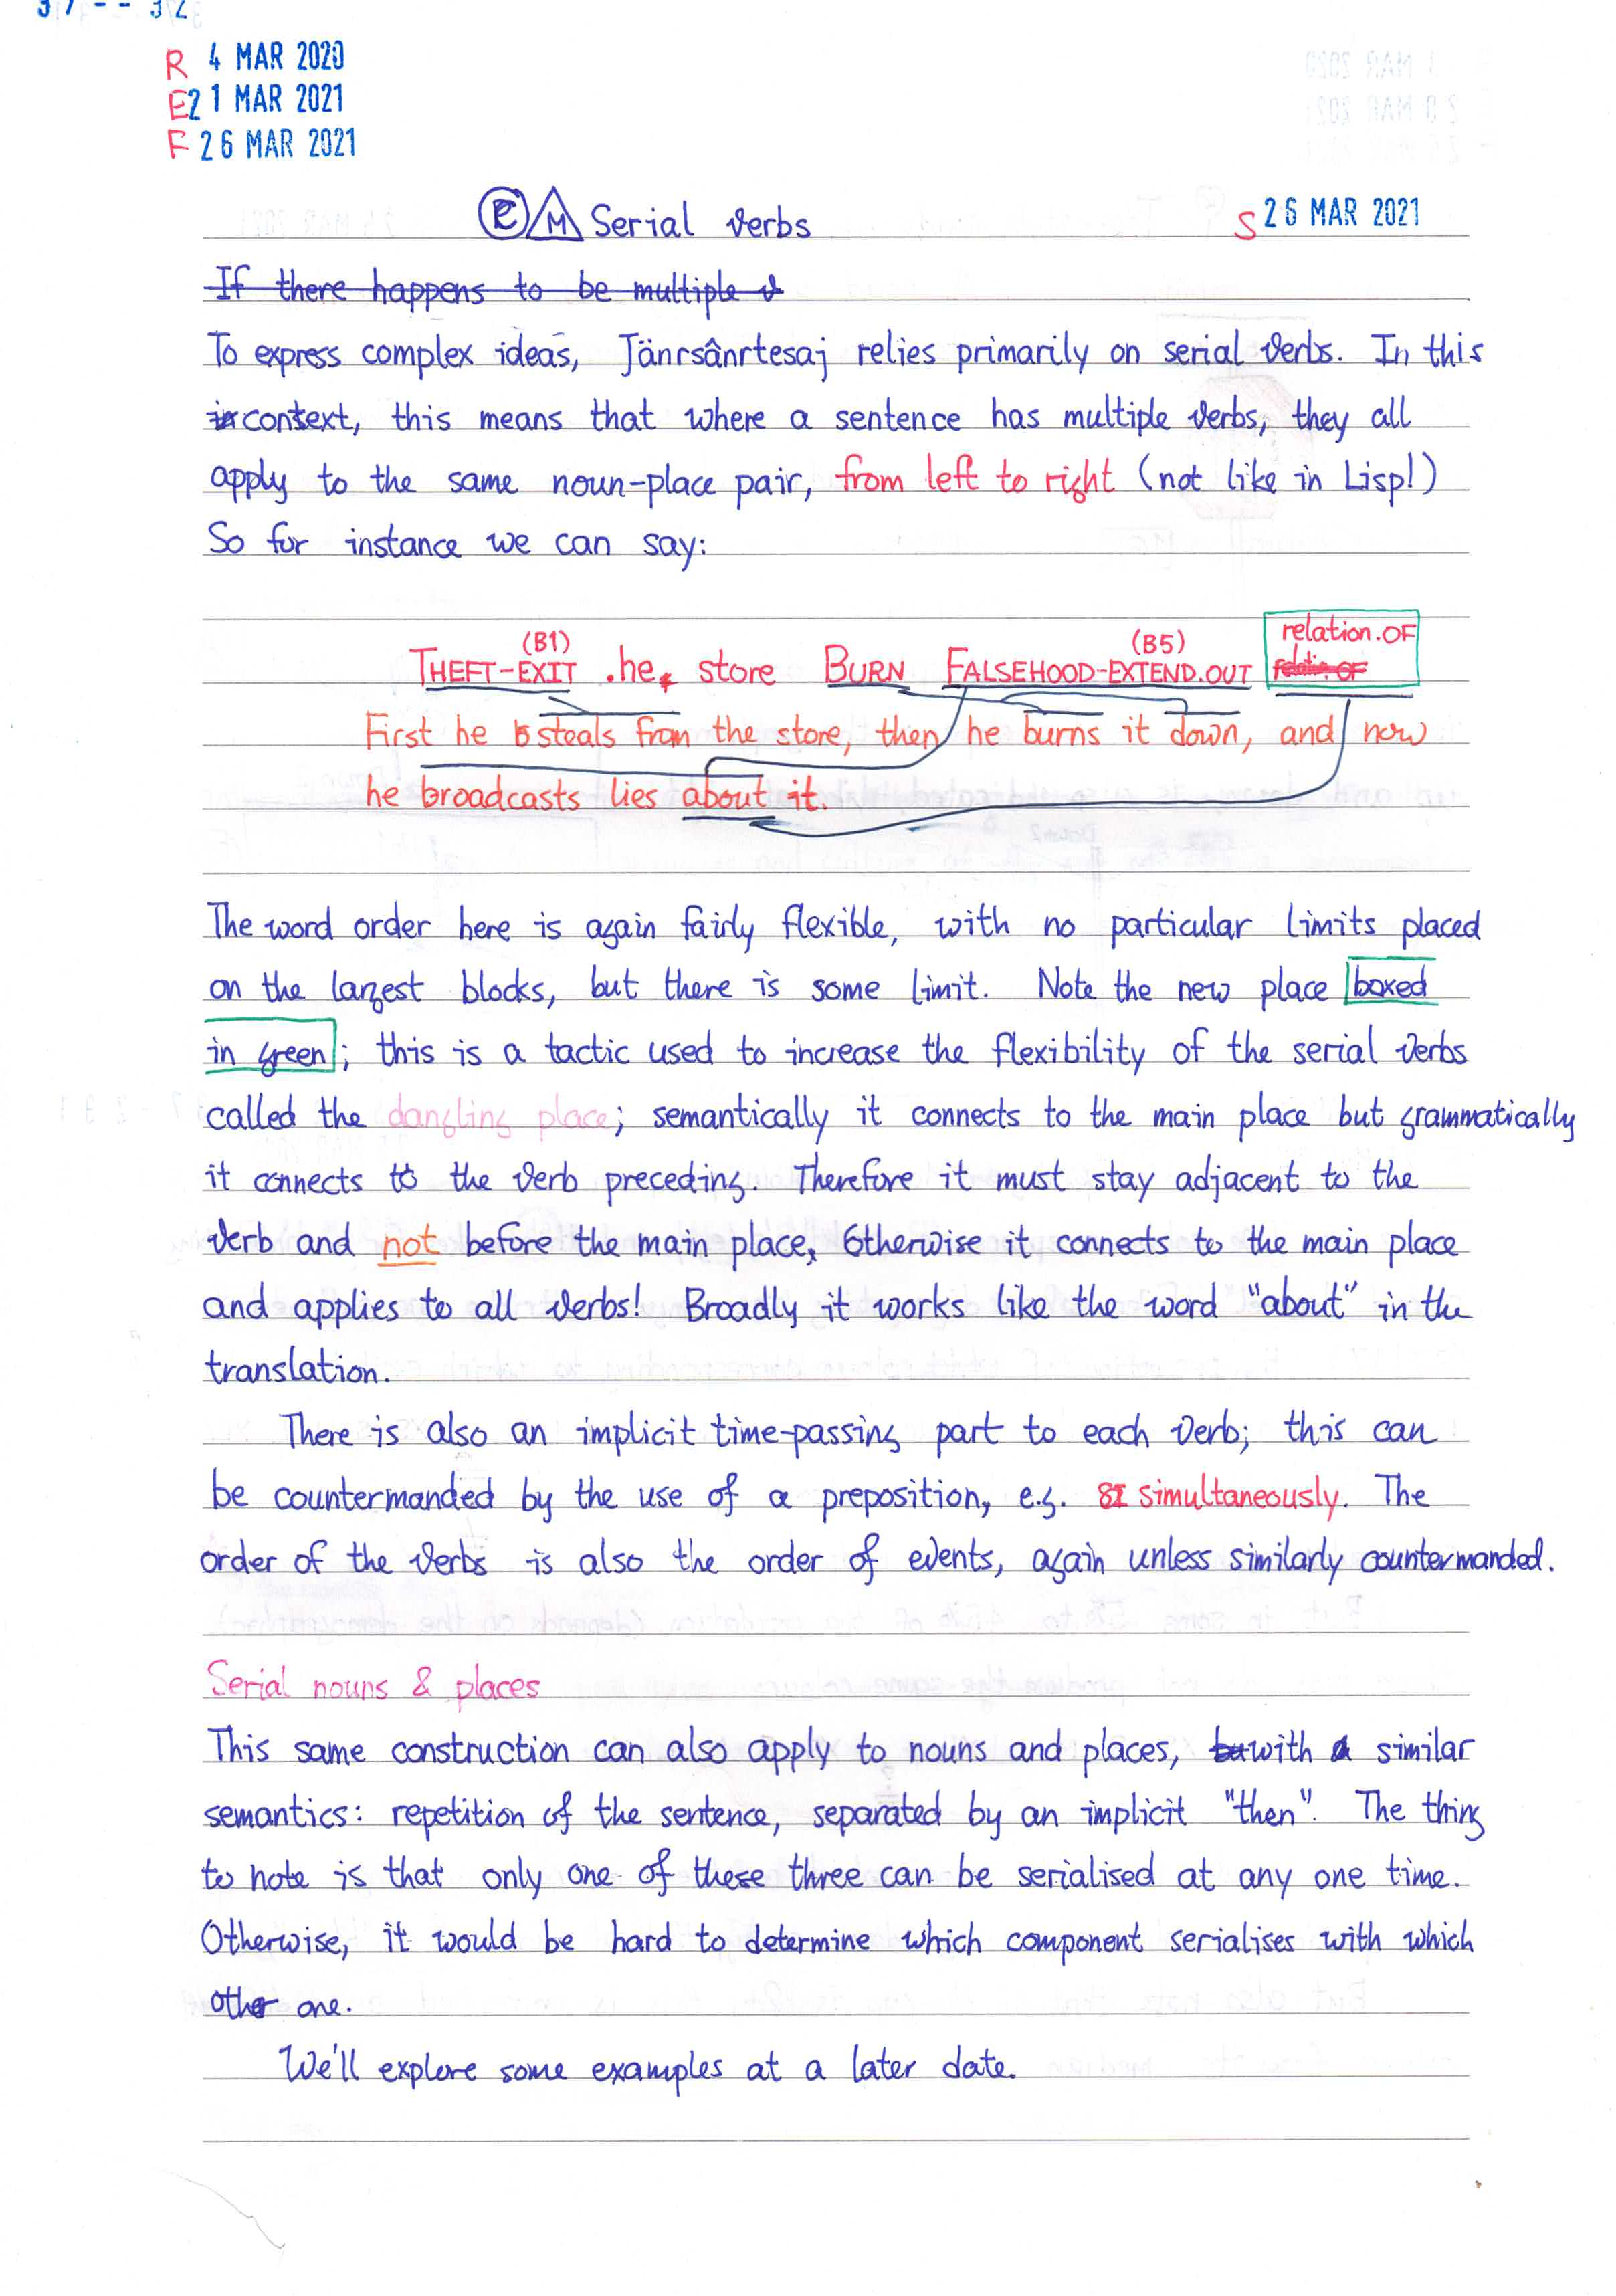 37--32
R 4 MAR 2020
E 21 MAR 2021
F 26 MAR 2021
M Serial verbs
S 26 MAR 2021
If there happens to be multiple v
To express complex ideas, Jänrsânrtesaj relies primarily on serial verbs. In this
in context, this means that where a sentence has multiple verbs, they all
apply to the same noun-place pair, from left to right (not like in Lisp!)
So for instance we can say:
(B1) (B5) relation.OF
THEFT-EXIT .he. store BURN FALSEHOOD-EXTEND.OUT
First he steals from the store, then he burns it down, and now
he broadcasts lies about it.
The word order here is again fairly flexible, with no particular limits placed
on the largest blocks, but there is some limit. Note the new place boxed
in green; this is a tactic used to increase the flexibility of the serial verbs
called the dangling place; semantically it connects to the main place but grammatically
it connects to the verb preceding. Therefore it must stay adjacent to the
verb and not before the main place, Otherwise it connects to the main place
and applies to all verbs! Broadly it works like the word "about" in the
translation.
There is also an implicit time-passing part to each verb; this can
be countermanded by the use of a preposition, e.g. simultaneously. The
order of the verbs is also the order of events, again unless similarly countermanded.
Serial nouns & places
This same construction can also apply to nouns and places, with similar
semantics: repetition of the sentence, separated by an implicit "then". The thing
to note is that only one of these three can be serialised at any one time.
Otherwise, it would be hard to determine which component serialises with which
other one.
We'll explore some examples at a later date.